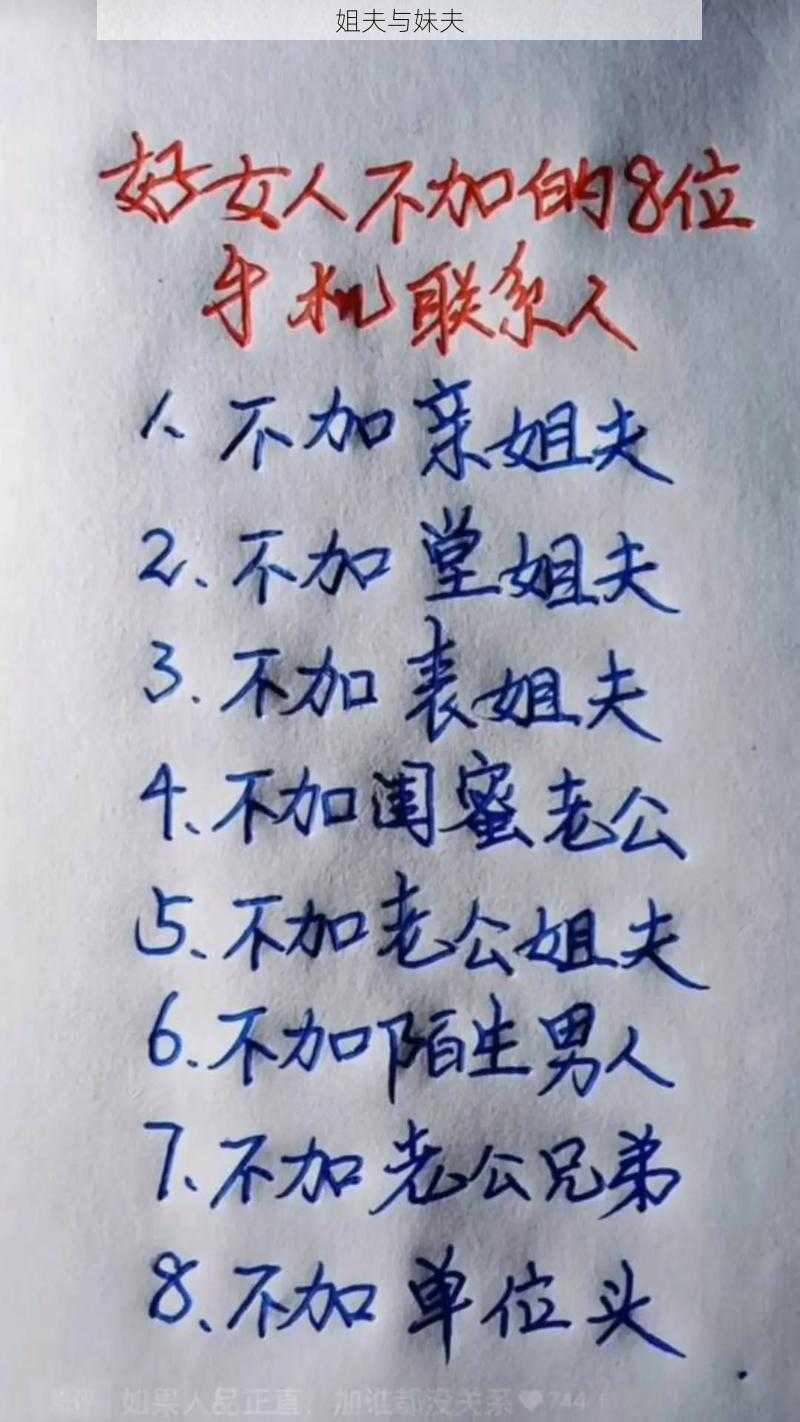 姐夫与妹夫
好女人不加的8位
手机联系人
1、不加亲姐夫
2、不加堂姐夫
3、不加表姐夫
4、不加闺蜜老公
5、不加老公姐夫
6、不加陌生男人
7、不加老公兄弟
8、不加单位头
如果人品正直，加谁都没关系❤744